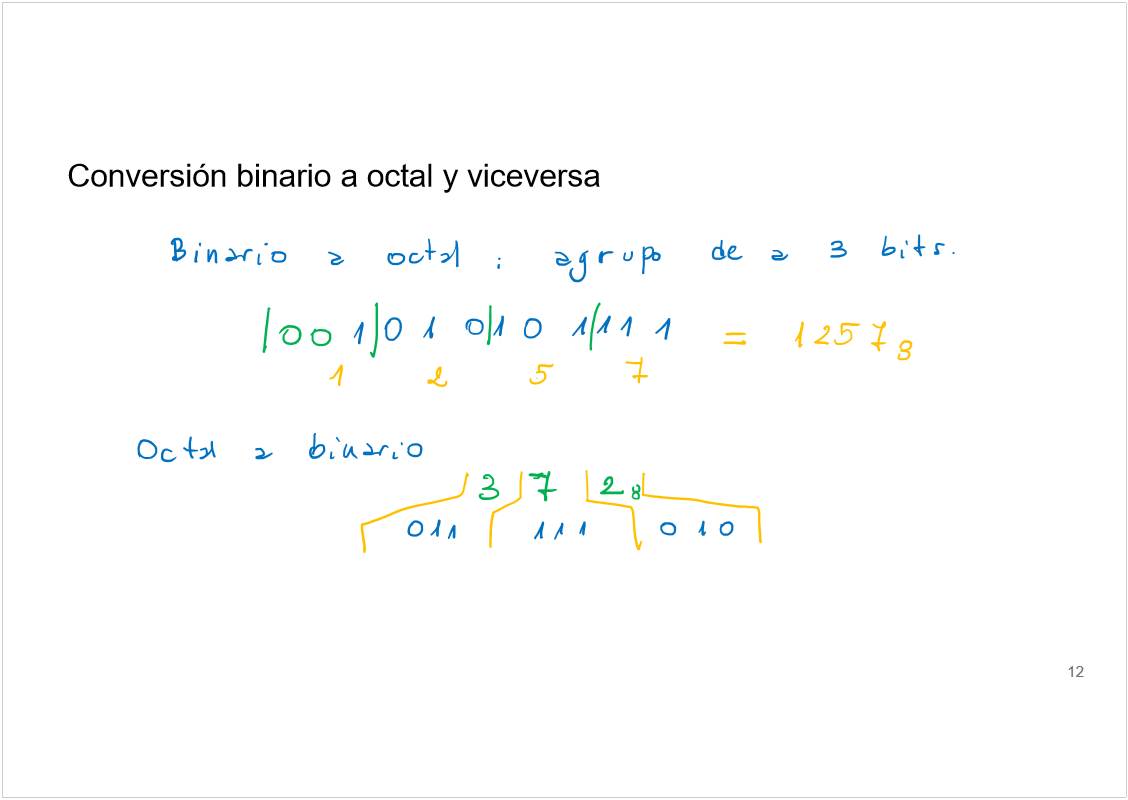 Conversión binario a octal y viceversa
Binario a octal : agrupo de a 3 bits.
|00 1|0 1 0|1 0 1|1 1 1 = 1257₈
1 2 5 7
Octal a binario
3 7 2₈
011 111 010
12